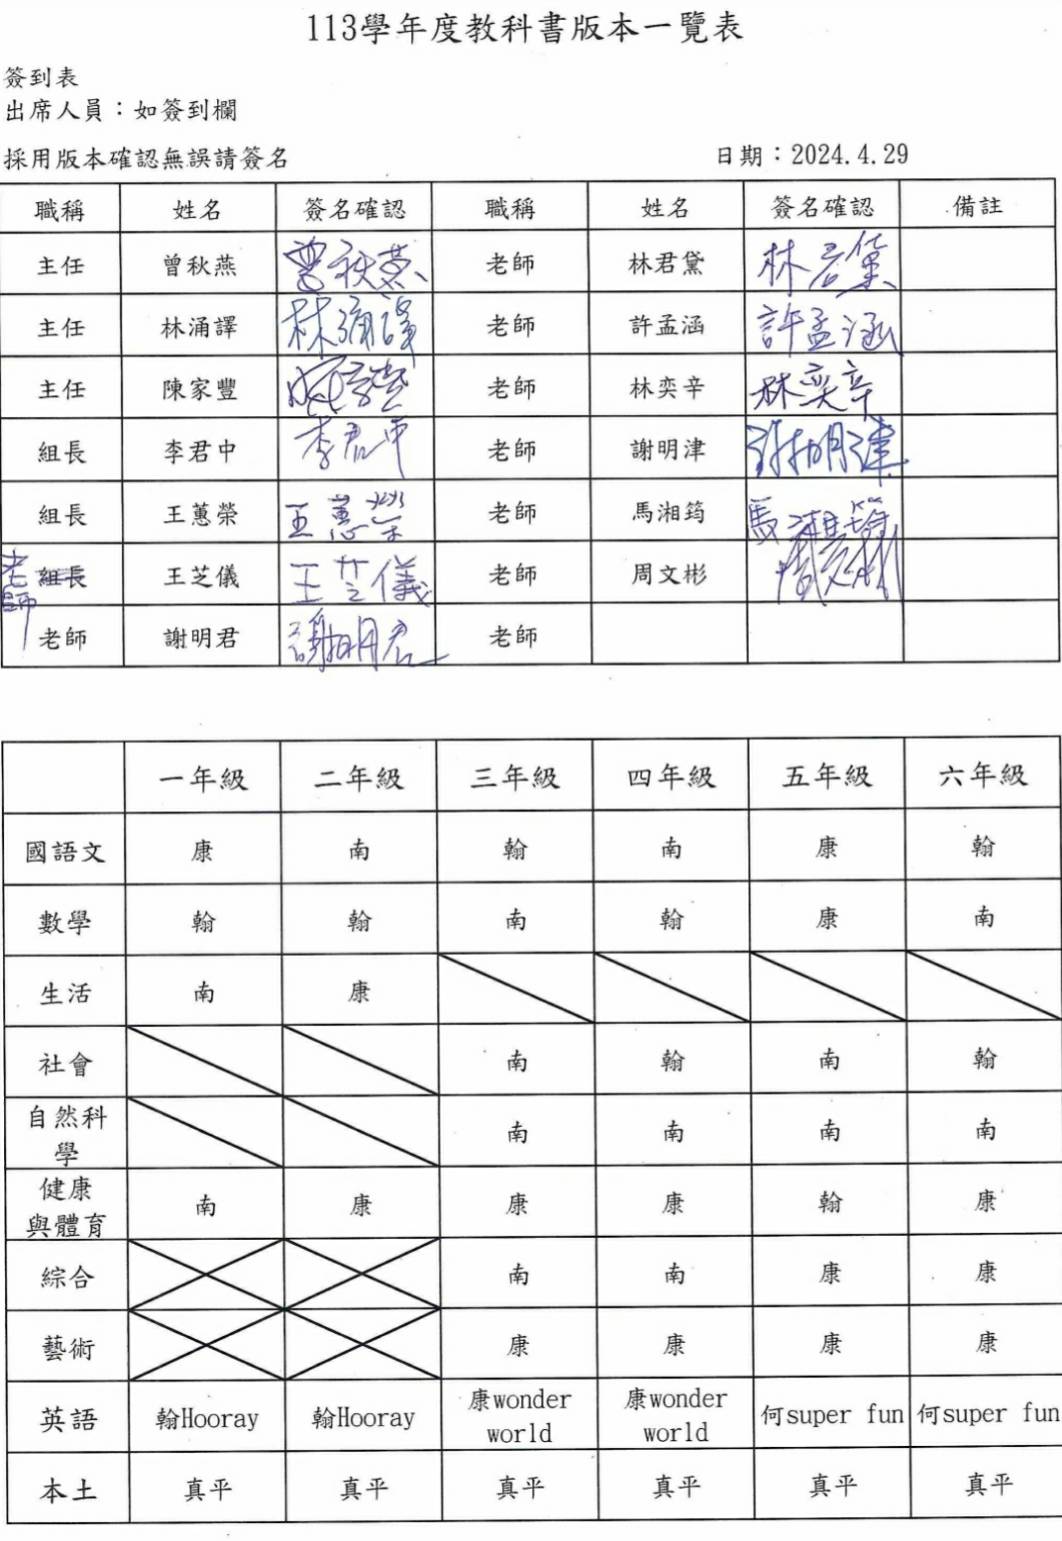 113學年度教科書版本一覽表
簽到表
出席人員：如簽到欄
採用版本確認無誤請簽名 日期：2024.4.29
職稱 姓名 簽名確認 職稱 姓名 簽名確認 備註
主任 曾秋燕 曾秋燕 老師 林君黛 林君黛
主任 林涌譯 林涌譯 老師 許孟涵 許孟涵
主任 陳家豐 老師 林奕辛 林奕辛
組長 李君中 李君中 老師 謝明津 謝明津
組長 王蕙榮 王蕙榮 老師 馬湘筠 馬湘筠
老師 組長 王芝儀 王芝儀 老師 周文彬 周文彬
老師 謝明君 謝明君 老師
一年級 二年級 三年級 四年級 五年級 六年級
國語文 康 南 翰 南 康 翰
數學 翰 翰 南 翰 康 南
生活 南 康
社會 南 翰 南 翰
自然科
學 南 南 南 南
健康
與體育 南 康 康 康 翰 康
綜合 南 南 康 康
藝術 康 康 康 康
英語 翰Hooray 翰Hooray 康wonder world 康wonder world 何super fun 何super fun
本土 真平 真平 真平 真平 真平 真平